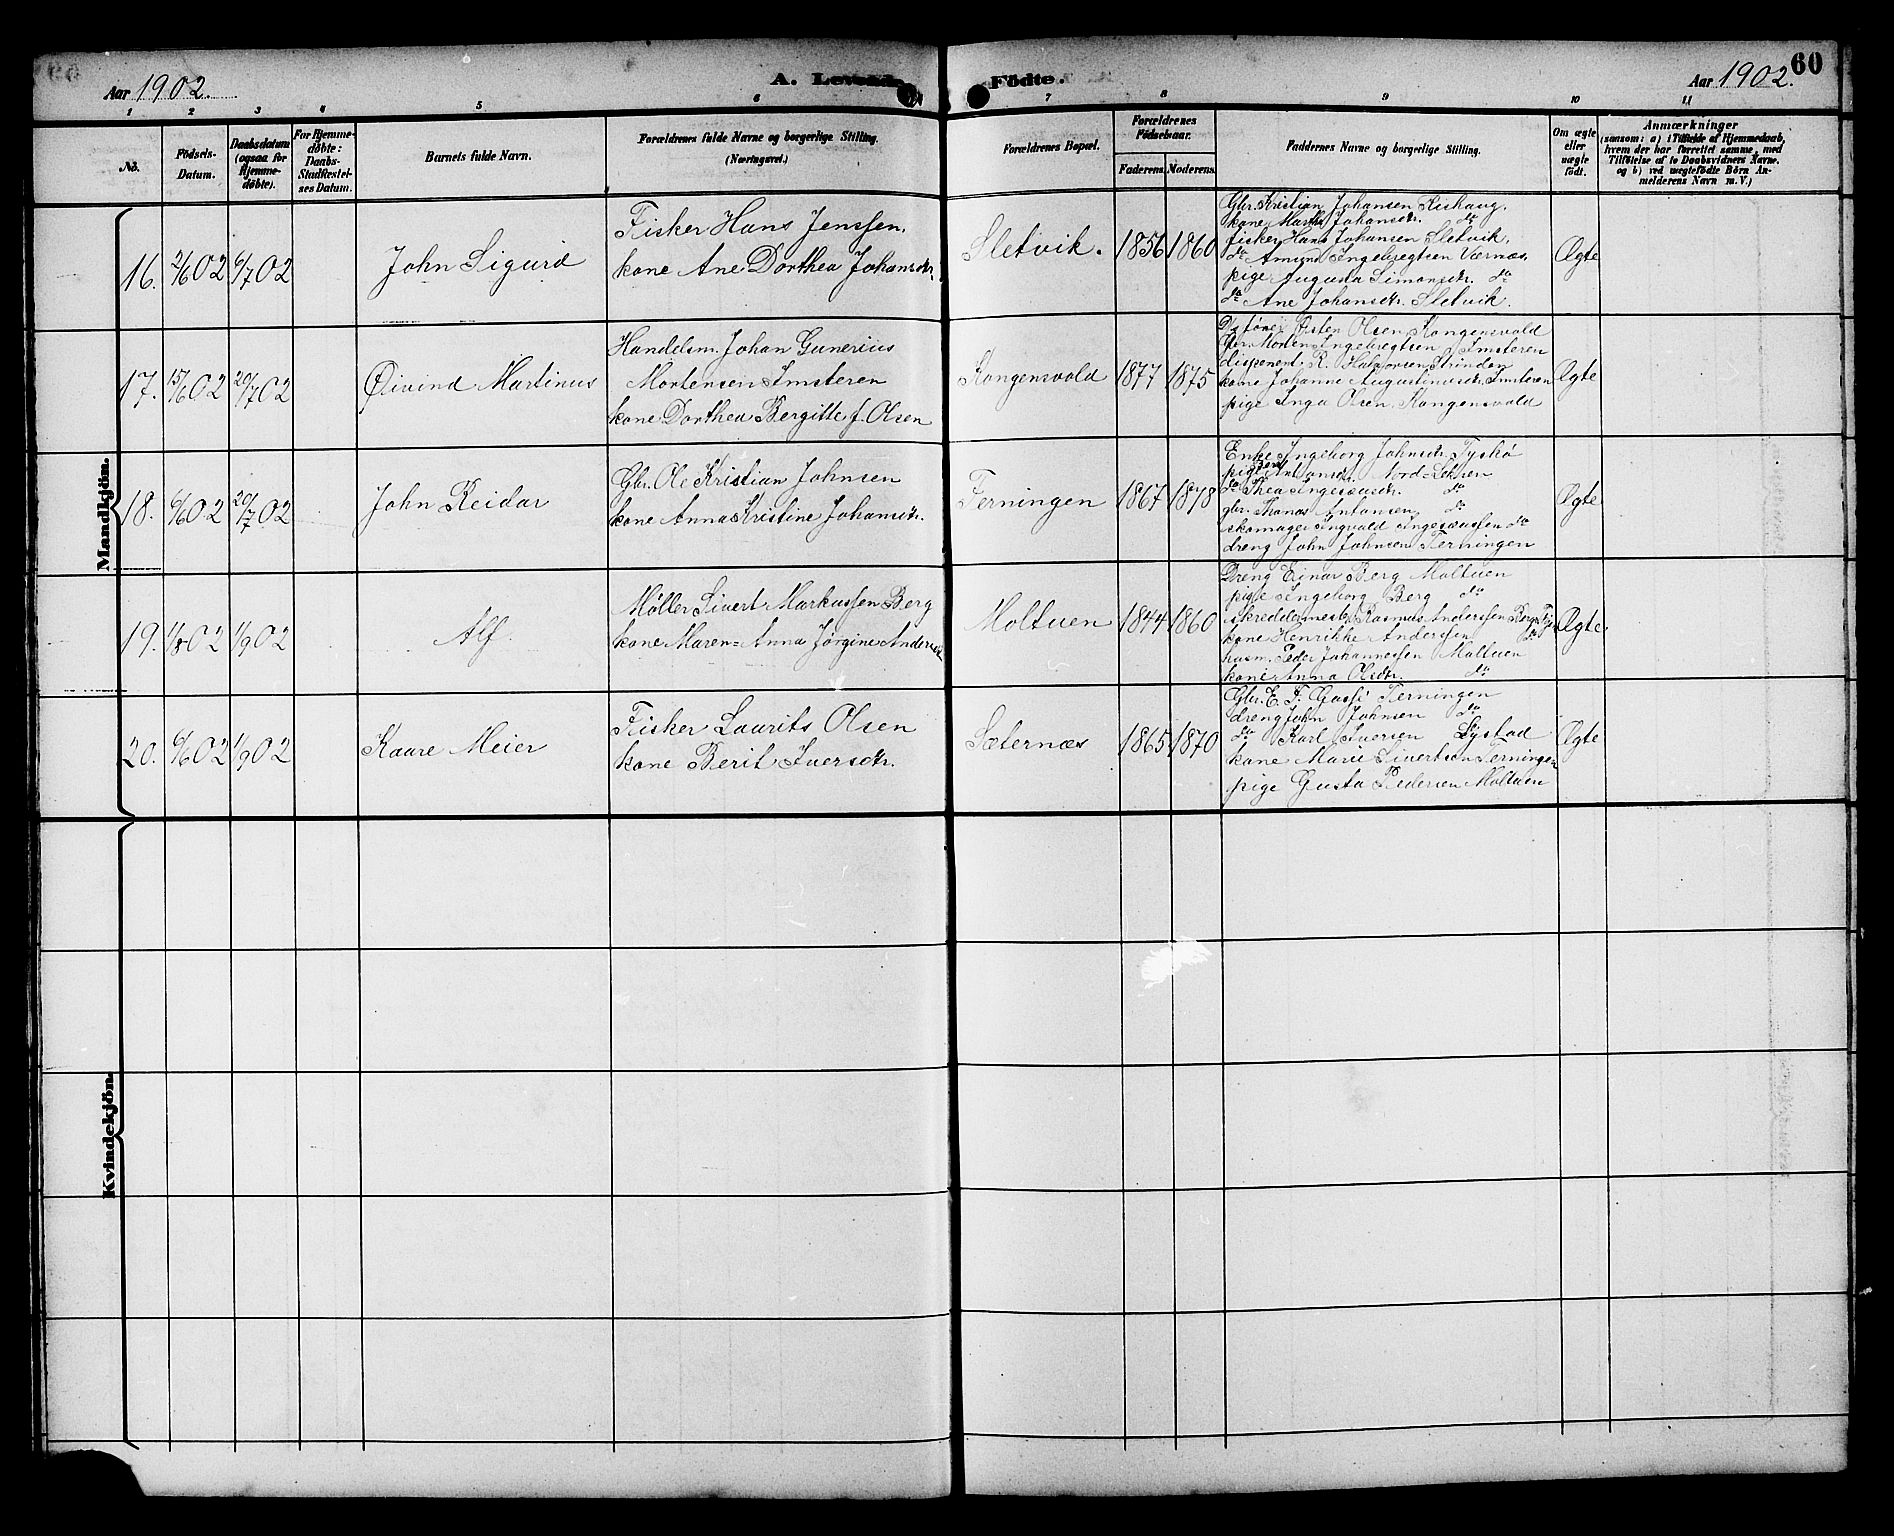 Aar 1902.
A. Levende Födte.
Aar 1902.
60
1 2 3 4 5 6 7 8 9 10 11
No.
Födsels-
Datum.
Daabsdatum
(ogsaa for
Hjemme-
døbte).
For Hjemme-
døbte:
Daabs-
Stadfæstel-
ses Datum.
Barnets fulde Navn.
Forældrenes fulde Navne og borgerlige Stilling.
(Næringsvei.)
Forældrenes Bopæl.
Forældrenes
Födselsaar.
Faderens.
Moderens.
Faddernes Navne og borgerlige Stilling.
Om ægte
eller
uægte
født.
Anmærkninger
(saasom: a) i Tilfælde af Hjemmedaab,
hvem der har forrettet samme, med
Tilföielse af to Daabsvidners Navne.
og b) ved uægtefödte Börn An-
melderens Navn m. V.)
Mandkjön.
16.
2/6 02
6/7 02
John Sigurd
Fisker Hans Jenssen.
kone Ane Dorthea Johansdr.
Sletvik.
1856
1860
Gbr. Kristian Johansen Kishaug.
kone Martha Johansdr. do
fisker Hans Johansen Sletvik.
do Amund Ingebregtsen Værnæs
pige Augusta Simonsdr. do
do Ane Johansdr. Sletvik.
Ægte
17.
15/6 02
20/7 02
Øivind Martinus
Handelsm. Johan Gunerius
Mortensen Imsteren
kone Dorthea Bergitte f. Olsen
Kongensvold
1877
1875
Østen Olsen Kongensvold
Gbr. Morten Ingebregtsen Imsteren
disponent R. Halvorsen Strinden
kone Johanne Augustinusdr. Imsteren
pige Inga Olsen Kongensvold
Ægte
18.
6/6 02
20/7 02
John Reidar
Gbr. Ole Kristian Johnsen
kone Anna Kristine Johansdr.
Terningen
1867
1878
Enke Ingeborg Johnsdr. Tyshø
pige Antonsdr. Nord-Leksen
do Thea Ingesausdr. do
gbr. Thomas Antonsen do
skomager Ingvald Ingesaussen do
dreng John Johnsen Terningen
Ægte
19.
1/8 02
1/9 02
Alf.
Møller Sivert Markussen Berg
kone Maren-Anna Jørgine Anderse
Moltuen
1844
1860
Dreng Einar Berg Moltuen
pige Ingeborg Berg do
skreddermester Rasmus Anderssen
kone Henrikke Anderssen do
husm. Peder Johannessen Moltuen
kone Anna Olsdr. do
Ægte.
20.
6/6 02
1/9 02
Kaare Meier
Fisker Laurits Olsen
kone Berit Iversdr.
Sæternæs
1865
1870
Gbr. E. F. Terningen
dreng John Johnsen do
do Karl Iversen Systad
kone Marie Sivertsen Terningen
pige Gusta Pedersen Moltuen
Ægte
Kvindekjön.